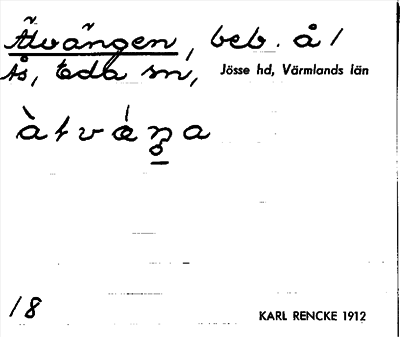 Älvängen, beb. å /
ts, Eda sn, Jösse hd, Värmlands län
àlvéŋa
18
KARL RENCKE 1912